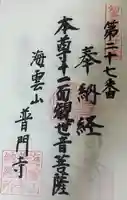 第二十七番
奉納経
本尊十一面観世音菩薩
海雲山
普門寺